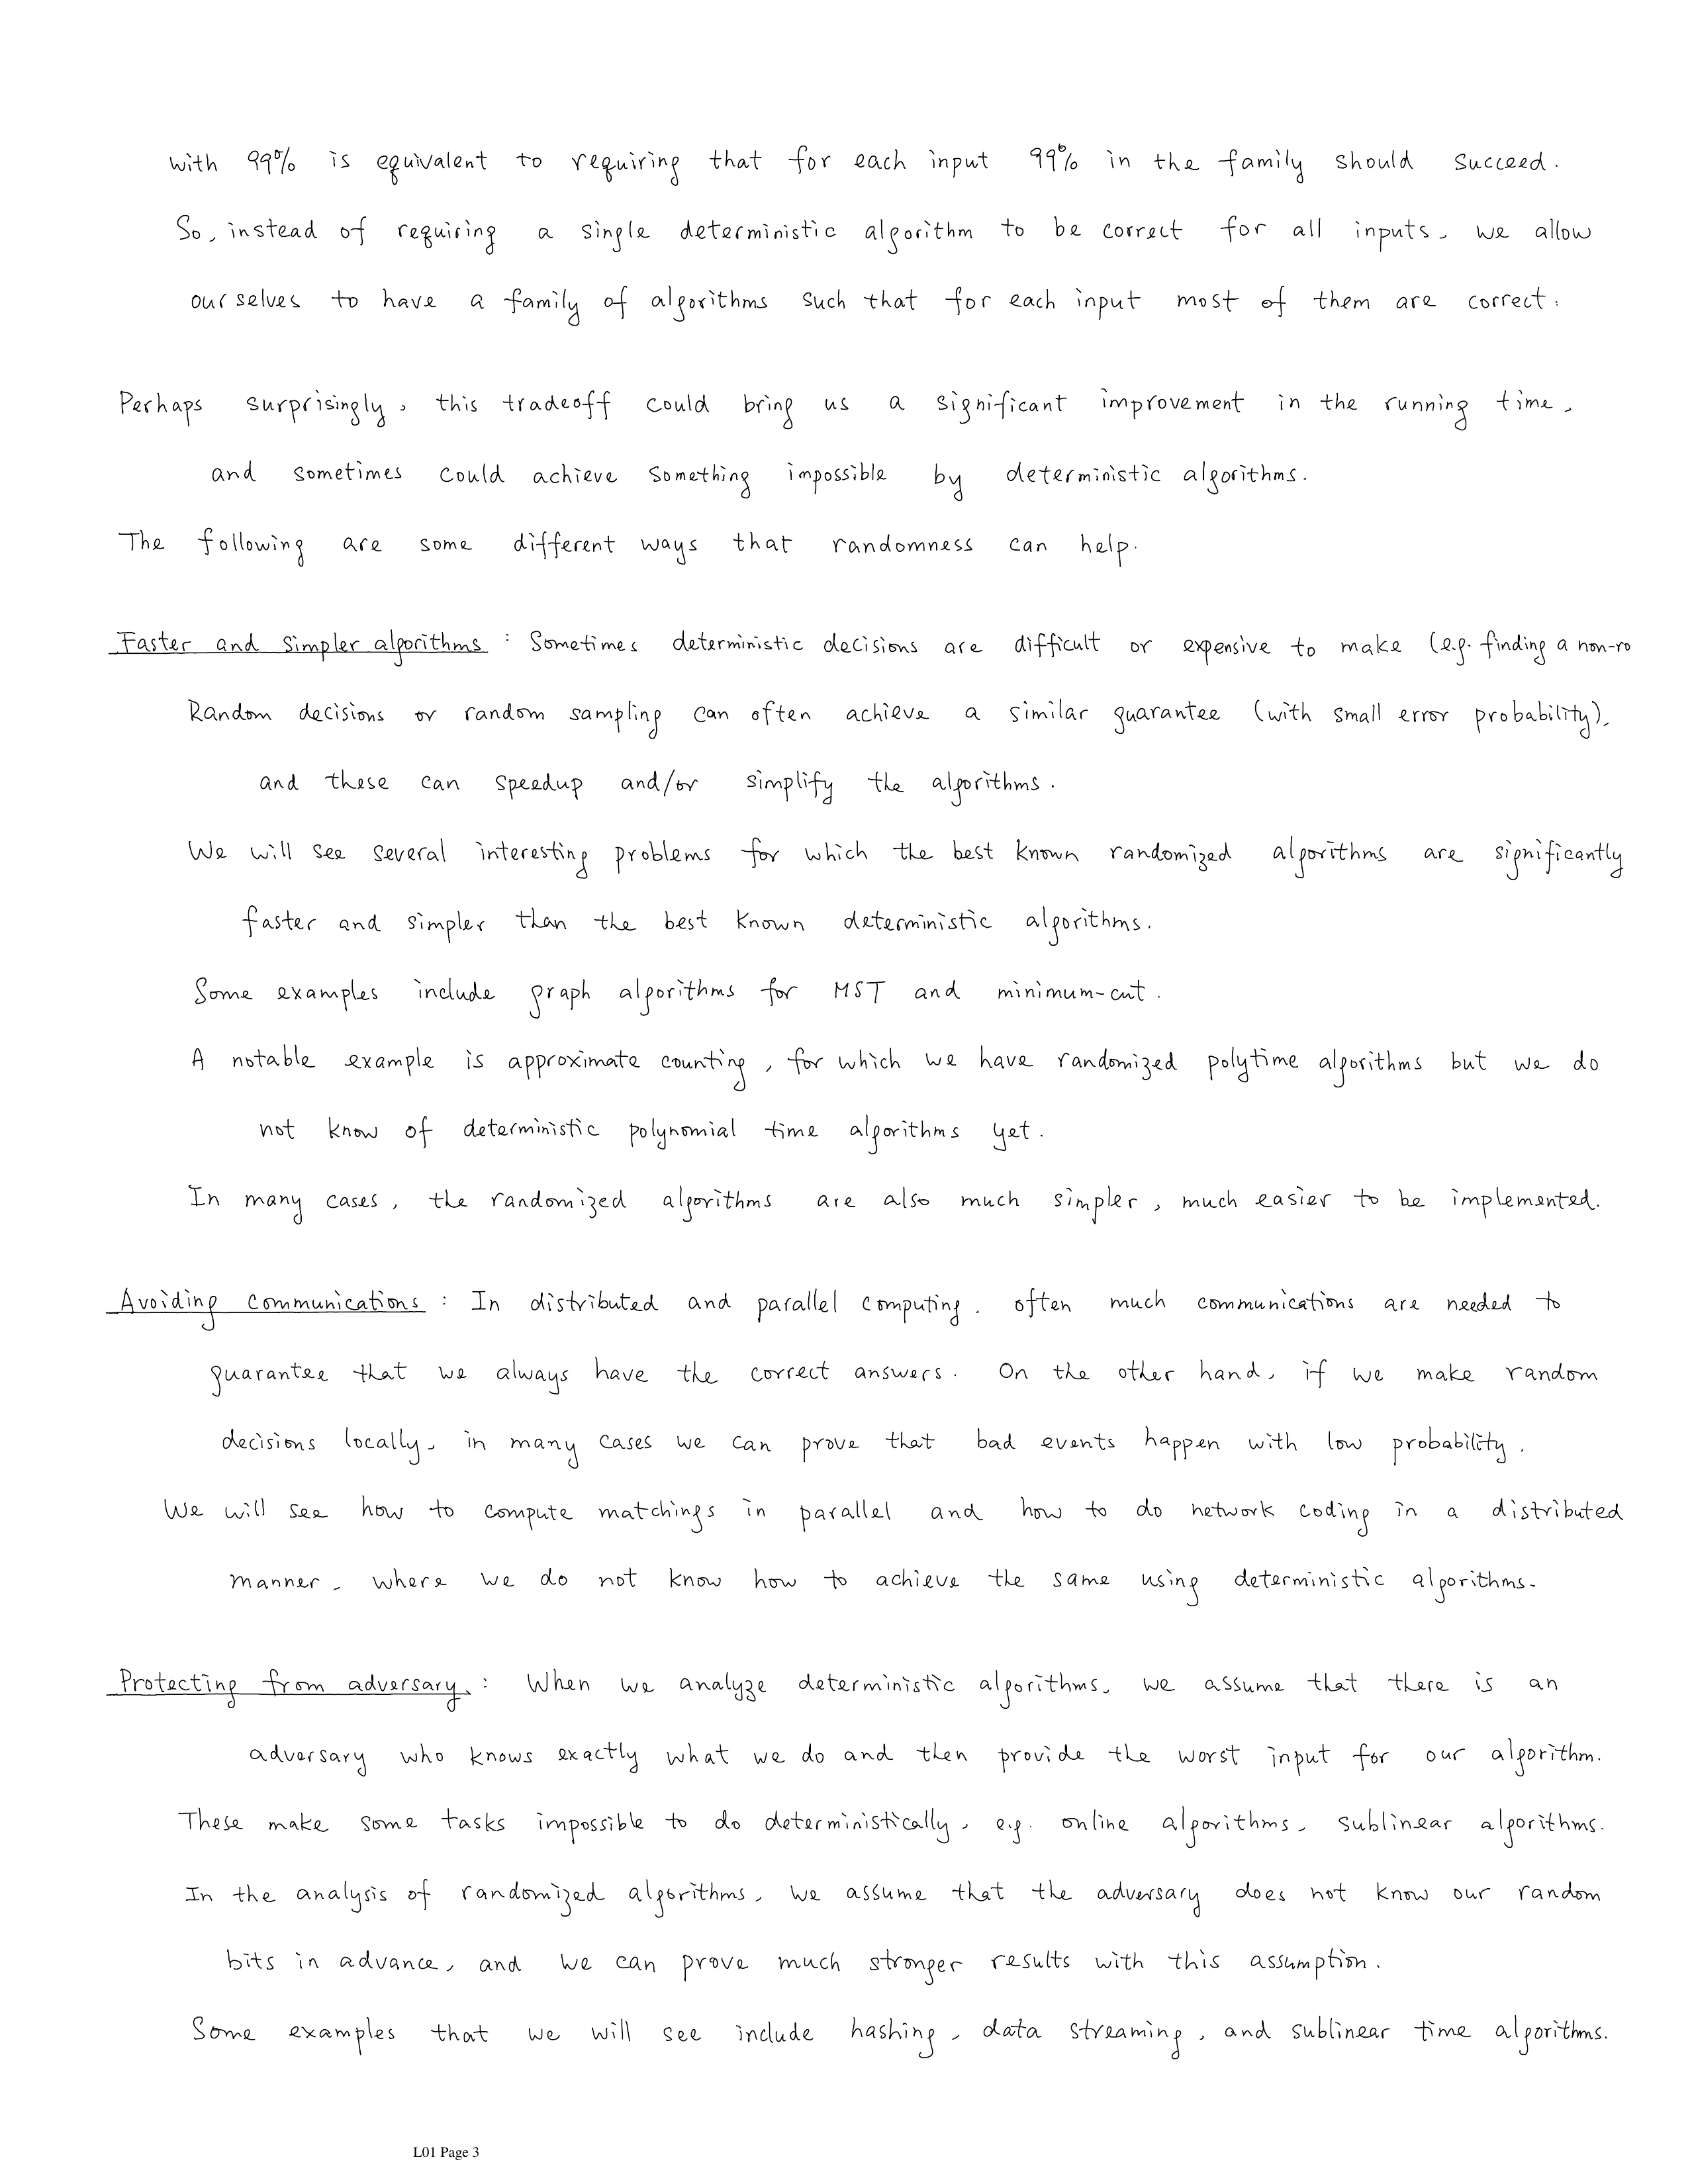 with 99% is equivalent to requiring that for each input 99% in the family should succeed.
So, instead of requiring a single deterministic algorithm to be correct for all inputs, we allow
ourselves to have a family of algorithms such that for each input most of them are correct.
Perhaps surprisingly, this tradeoff could bring us a significant improvement in the running time,
and sometimes could achieve something impossible by deterministic algorithms.
The following are some different ways that randomness can help.
Faster and simpler algorithms : Sometimes deterministic decisions are difficult or expensive to make (e.g. finding a non-ro
Random decisions or random sampling can often achieve a similar guarantee (with small error probability),
and these can speedup and/or simplify the algorithms.
We will see several interesting problems for which the best known randomized algorithms are significantly
faster and simpler than the best known deterministic algorithms.
Some examples include graph algorithms for MST and minimum-cut.
A notable example is approximate counting, for which we have randomized polytime algorithms but we do
not know of deterministic polynomial time algorithms yet.
In many cases, the randomized algorithms are also much simpler, much easier to be implemented.
Avoiding communications : In distributed and parallel computing, often much communications are needed to
guarantee that we always have the correct answers. On the other hand, if we make random
decisions locally, in many cases we can prove that bad events happen with low probability.
We will see how to compute matchings in parallel and how to do network coding in a distributed
manner, where we do not know how to achieve the same using deterministic algorithms.
Protecting from adversary : When we analyze deterministic algorithms, we assume that there is an
adversary who knows exactly what we do and then provide the worst input for our algorithm.
These make some tasks impossible to do deterministically, e.g. online algorithms, sublinear algorithms.
In the analysis of randomized algorithms, we assume that the adversary does not know our random
bits in advance, and we can prove much stronger results with this assumption.
Some examples that we will see include hashing, data streaming, and sublinear time algorithms.
L01 Page 3